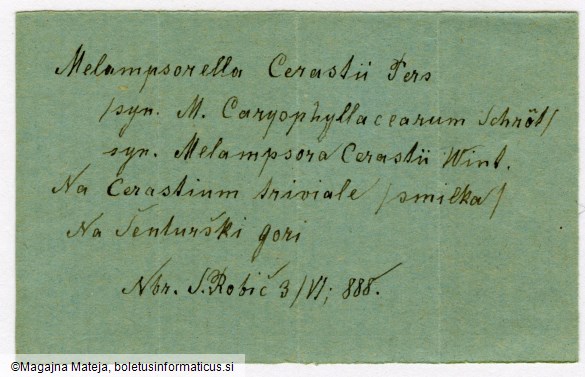 Melampsorella Cerastii Pers
/syn. M. Caryophyllacearum Schröt/
syn. Melampsora Cerastii Wint.
Na Cerastium triviale /smilka/
Na Šenturški gori
Nbr. S. Robič 3/VI; 888.
©Magajna Mateja, boletusinformaticus.si